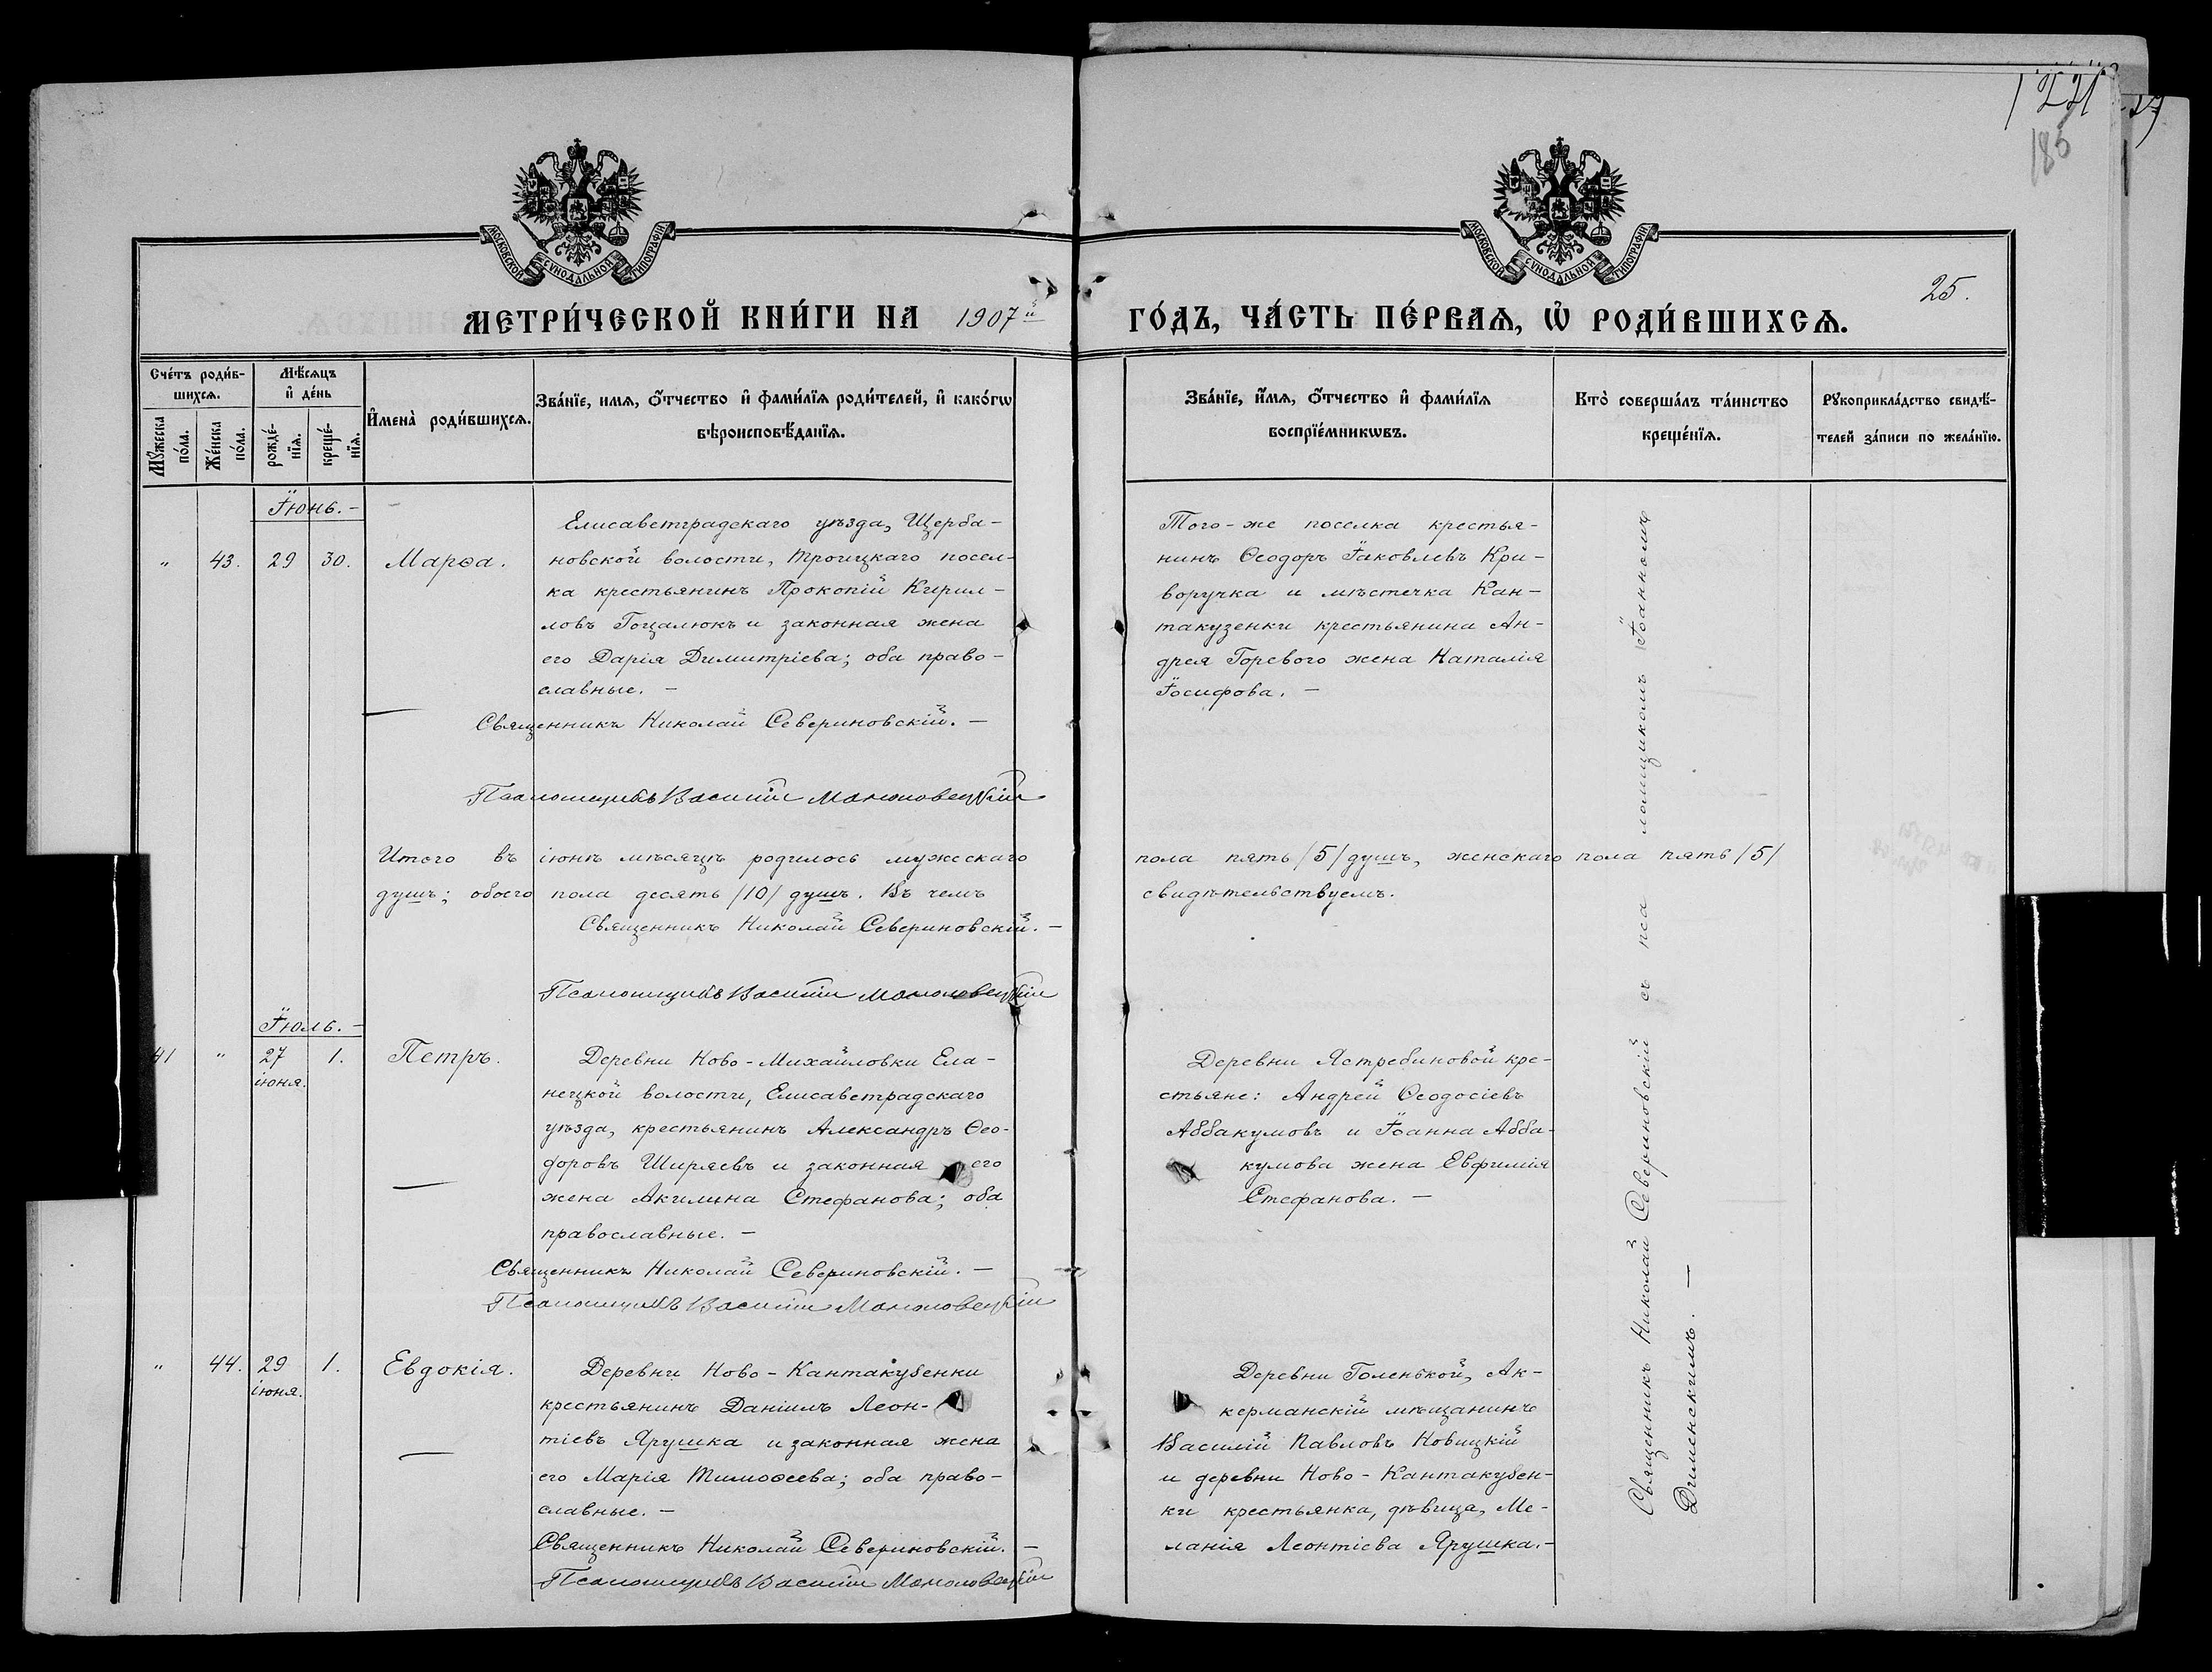 1221
185
МОСКОВСКОЙ СѴНОДАЛЬНОЙ ТИПОГРАФІИ
МОСКОВСКОЙ СѴНОДАЛЬНОЙ ТИПОГРАФІИ
25.
МЕТРИ́ЧЕСКОЙ КНИ́ГИ НА 1907й
ГО́ДЪ, ЧА́СТЬ ПЕ́РВАѦ, Ѡ҆ РОДИ́ВШИХСѦ.
Сче́тъ роди́в-
шихсѧ.
Мꙋ́жеска
по́ла.
Же́нска
по́ла.
Мѣ́сѧцъ
и҆ де́нь
рожде́-
нїѧ.
креще́-
нїѧ.
И҆мена̀ роди́вшихсѧ.
Зва́нїе, имѧ, ѻ҆́тчество и҆ фами́лїѧ роди́телей, и҆ како́гѡ
вѣроисповѣ́данїѧ.
Зва́нїе, и҆́мѧ, ѻ҆́тчество и҆ фами́лїѧ
воспрїе́мникѡвъ.
Кто̀ соверша́лъ та́инство
креще́нїѧ.
Рꙋкоприкла́дство свидѣ́-
телей за́писи по жела́нїю.
Їюнь. -
" 43. 29 30. Марѳа.
Елисаветградскаго уѣзда, Щерба-
новской волости, Троицкаго посел-
ка крестьянинъ Прокопій Кирил-
ловъ Гоцалюкъ и законная жена
его Дарія Димитріева; оба право-
славные. -
Священникъ Николай Севериновскій. -
Псаломщикъ Василій
Того-же поселка крестья-
нинъ Ѳеодоръ Їаковлевъ Кри-
воручка и мѣстечка Кан-
такузенки крестьянина Ан-
дрея Горевого жена Наталія
Їосифова. -
Итого въ іюнѣ мѣсяцѣ родилось мужескаго пола пять /5/ душъ, женскаго пола пять /5/
душъ; обоего пола десять /10/ душъ. Въ чемъ свидѣтельствуемъ.
Священникъ Николай Севериновскій. -
Псаломщикъ Василій
Їюль. -
41 " 27 1. Петръ.
іюня.
Деревни Ново-Михайловки Ела-
нецкой волости, Елисаветградскаго
уѣзда, крестьянинъ Александръ Ѳео-
доровъ Ширяевъ и законная его
жена Акилина Стефанова; оба
православные. -
Священникъ Николай Севериновскій. -
Псаломщикъ Василій
Деревни Ястребиновой кре-
стьяне: Андрей Ѳеодосіевъ
Аббакумовъ и Їоанна Абба-
кумова жена Евфимія
Стефанова. -
" 44. 29 1. Евдокія.
іюня.
Деревни Ново-Кантакузенки
крестьянинъ Даніилъ Леон-
тіевъ Ярушка и законная жена
его Марія Тимоѳеева; оба право-
славные. -
Священникъ Николай Севериновскій. -
Псаломщикъ Василій
Деревни Голенькой, Ак-
керманскій мѣщанинъ
Василій Павловъ Новицкій
и деревни Ново-Кантакузен-
ки крестьянка, дѣвица, Ме-
ланія Леонтіева Ярушка. -
Священникъ Николай Севериновскій съ псаломщикомъ Їоанномъ